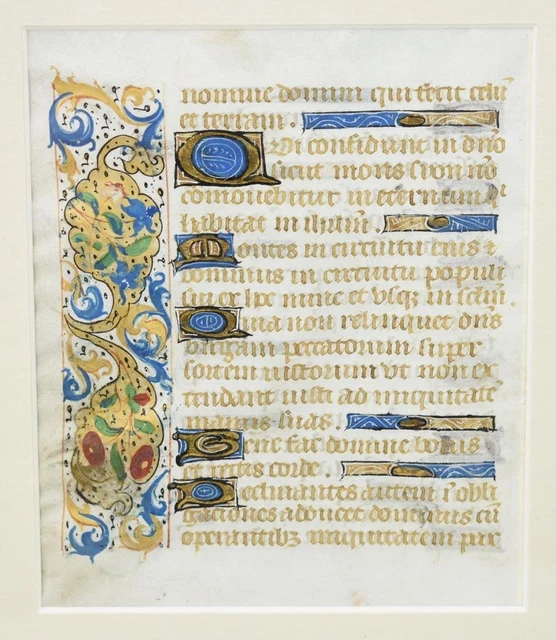 nomine domini qui fecit celū
et terram.
Qui confidunt in dn̄o
sicut mons syon nō
comouebitur in eternum q̄
habitat in ihrl̄m.
Montes in circuitu eius ⁊
dominus in circuitu populi
sui ex hoc nunc et vsqꝫ in sclm̄.
Quia non relinquet dn̄s
uirgam peccatorum super
sortem iustorum vt non ex
tendant iusti ad iniquitatē
manus suas.
Benefac domine bonis
et rectis corde.
Declinantes autem ī obli
gaciones adducet dominus cū
operantibꝫ iniquitatem pax